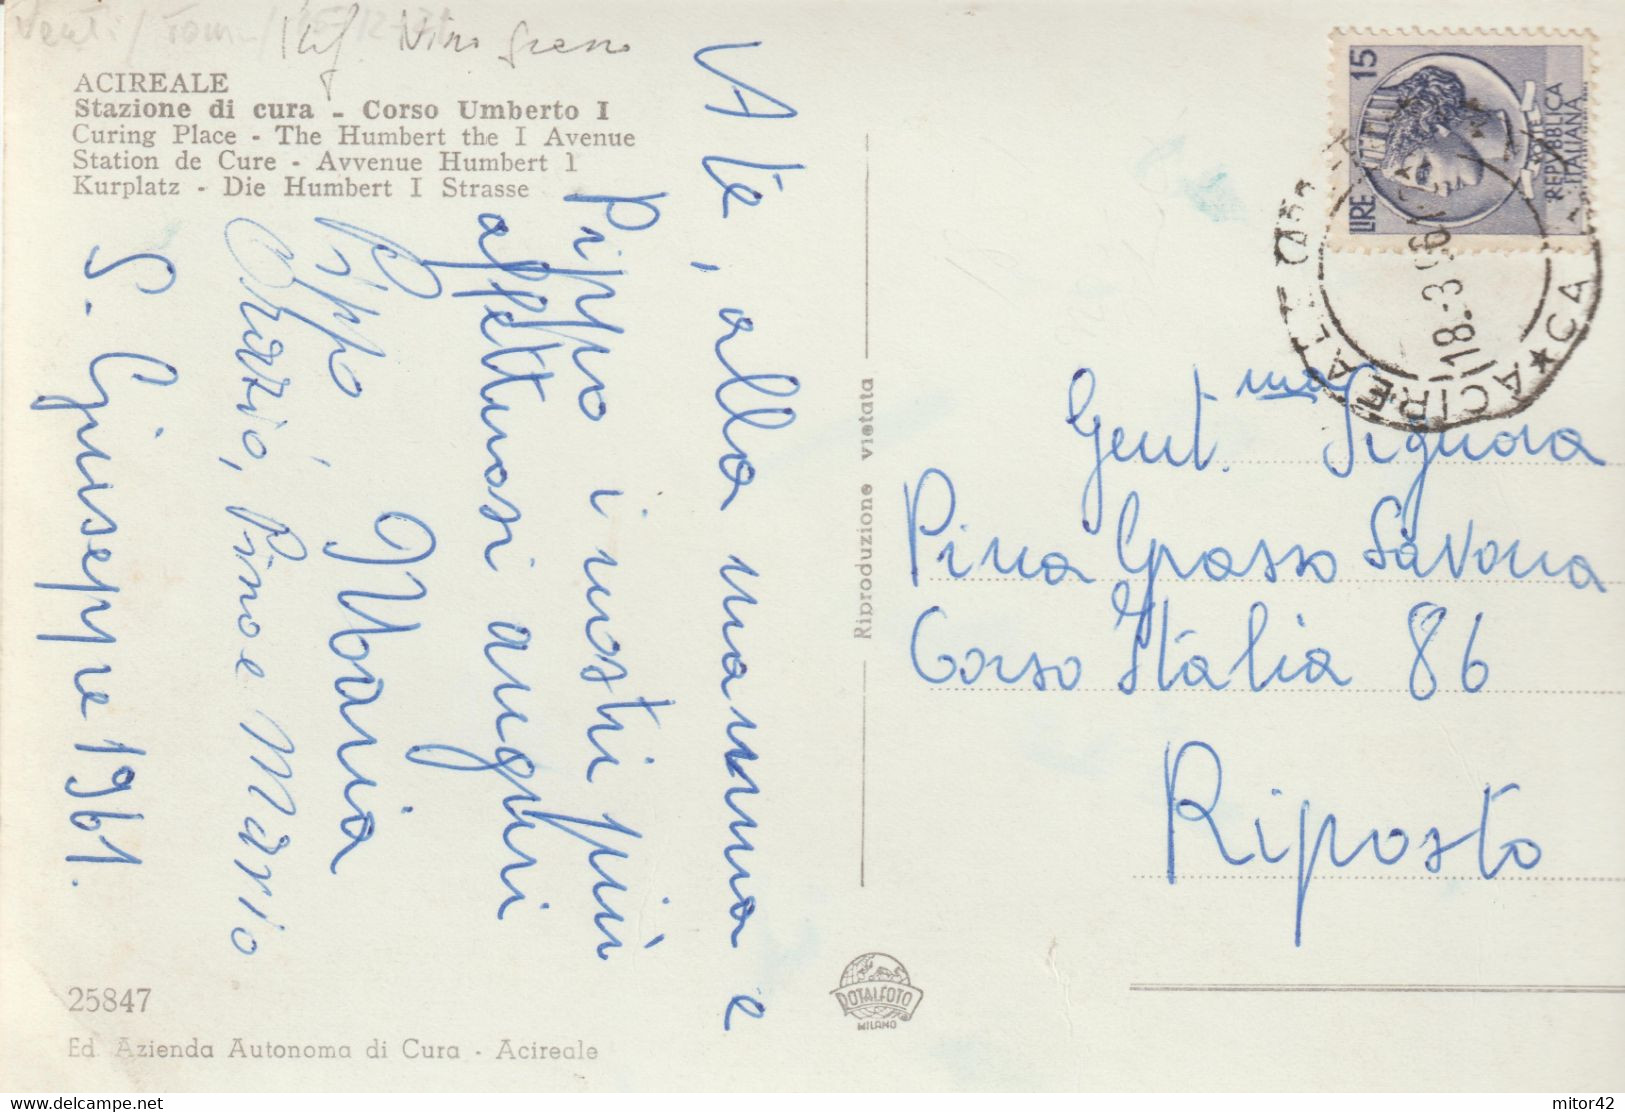 Nino Grasso
ACIREALE
Stazione di cura - Corso Umberto I
Curing Place - The Humbert the I Avenue
Station de Cure - Avvenue Humbert 1
Kurplatz - Die Humbert I Strasse
A te, alla mamma e
Pippo i nostri più
affettuosi auguri
Maria
Pippo
Orazio, Pino e Mario
S. Giuseppe 1961.
25847
Ed. Azienda Autonoma di Cura - Acireale
Riproduzione vietata
ROTALFOTO
MILANO
LIRE 15
POSTE
REPVBBLICA
ITALIANA
ACIREALE
18.-3.61
★ CA
Gent.ma Signora
Pina Grasso Savoca
Corso Italia 86
Riposto
mitor42